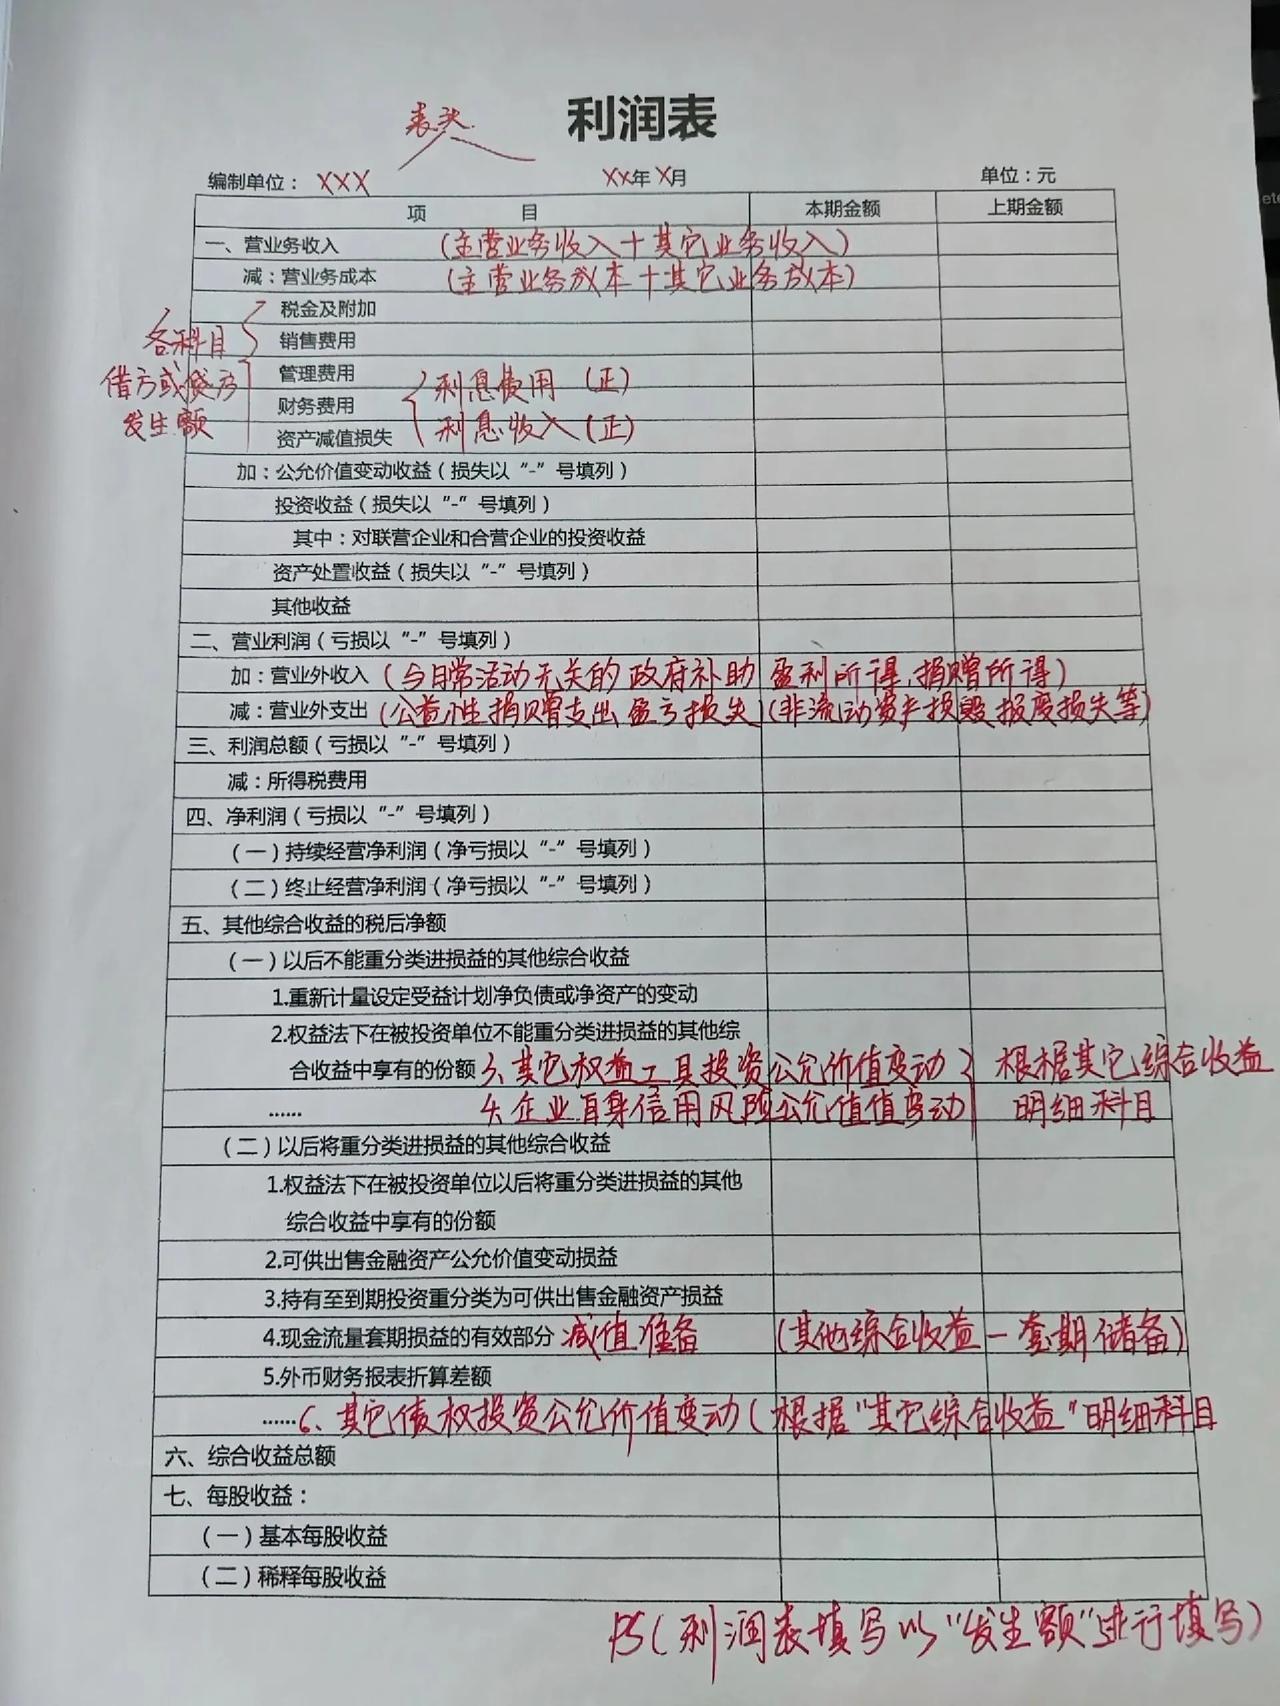 表头
利润表
编制单位： XXX XX年X月 单位：元
项 目 本期金额 上期金额
一、营业务收入 (主营业务收入+其它业务收入)
减：营业务成本 (主营业务成本+其它业务成本)
税金及附加
各科目
销售费用
借方或贷方
管理费用
利息费用 (正)
财务费用
发生额
利息收入 (正)
资产减值损失
加：公允价值变动收益（损失以“-”号填列）
投资收益（损失以“-”号填列）
其中：对联营企业和合营企业的投资收益
资产处置收益（损失以“-”号填列）
其他收益
二、营业利润（亏损以“-”号填列）
加：营业外收入 (与日常活动无关的政府补助 盈利所得,捐赠所得)
减：营业外支出 (公益性捐赠支出 盈亏损失 (非流动资产损毁 报废损失等)
三、利润总额（亏损以“-”号填列）
减：所得税费用
四、净利润（亏损以“-”号填列）
（一）持续经营净利润（净亏损以“-”号填列）
（二）终止经营净利润（净亏损以“-”号填列）
五、其他综合收益的税后净额
（一）以后不能重分类进损益的其他综合收益
1.重新计量设定受益计划净负债或净资产的变动
2.权益法下在被投资单位不能重分类进损益的其他综
合收益中享有的份额 3、其它权益工具投资公允价值变动 根据其它综合收益
...... 4、企业自身信用风险公允值值变动 明细科目
（二）以后将重分类进损益的其他综合收益
1.权益法下在被投资单位以后将重分类进损益的其他
综合收益中享有的份额
2.可供出售金融资产公允价值变动损益
3.持有至到期投资重分类为可供出售金融资产损益
4.现金流量套期损益的有效部分 减值准备 (其他综合收益一套期储备)
5.外币财务报表折算差额
......6、其它债权投资公允价值变动(根据“其它综合收益”明细科目
六、综合收益总额
七、每股收益：
（一）基本每股收益
（二）稀释每股收益
PS(利润表填写以“发生额”进行填写)